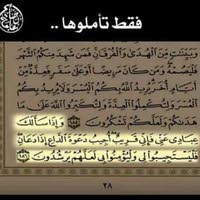 فقط تأملوها ..
وَبَيِّنَٰتٍ مِّنَ ٱلْهُدَىٰ وَٱلْفُرْقَانِ فَمَن شَهِدَ مِنكُمُ ٱلشَّهْرَ
فَلْيَصُمْهُ وَمَن كَانَ مَرِيضًا أَوْ عَلَىٰ سَفَرٍ فَعِدَّةٌ مِّنْ
أَيَّامٍ أُخَرَ يُرِيدُ ٱللَّهُ بِكُمُ ٱلْيُسْرَ وَلَا يُرِيدُ بِكُمُ
ٱلْعُسْرَ وَلِتُكْمِلُوا۟ ٱلْعِدَّةَ وَلِتُكَبِّرُوا۟ ٱللَّهَ عَلَىٰ مَا
هَدَىٰكُمْ وَلَعَلَّكُمْ تَشْكُرُونَ ١٨٥ وَإِذَا سَأَلَكَ
عِبَادِى عَنِّى فَإِنِّى قَرِيبٌ أُجِيبُ دَعْوَةَ ٱلدَّاعِ إِذَا دَعَانِ
فَلْيَسْتَجِيبُوا۟ لِى وَلْيُؤْمِنُوا۟ بِى لَعَلَّهُمْ يَرْشُدُونَ ١٨٦
٢٨